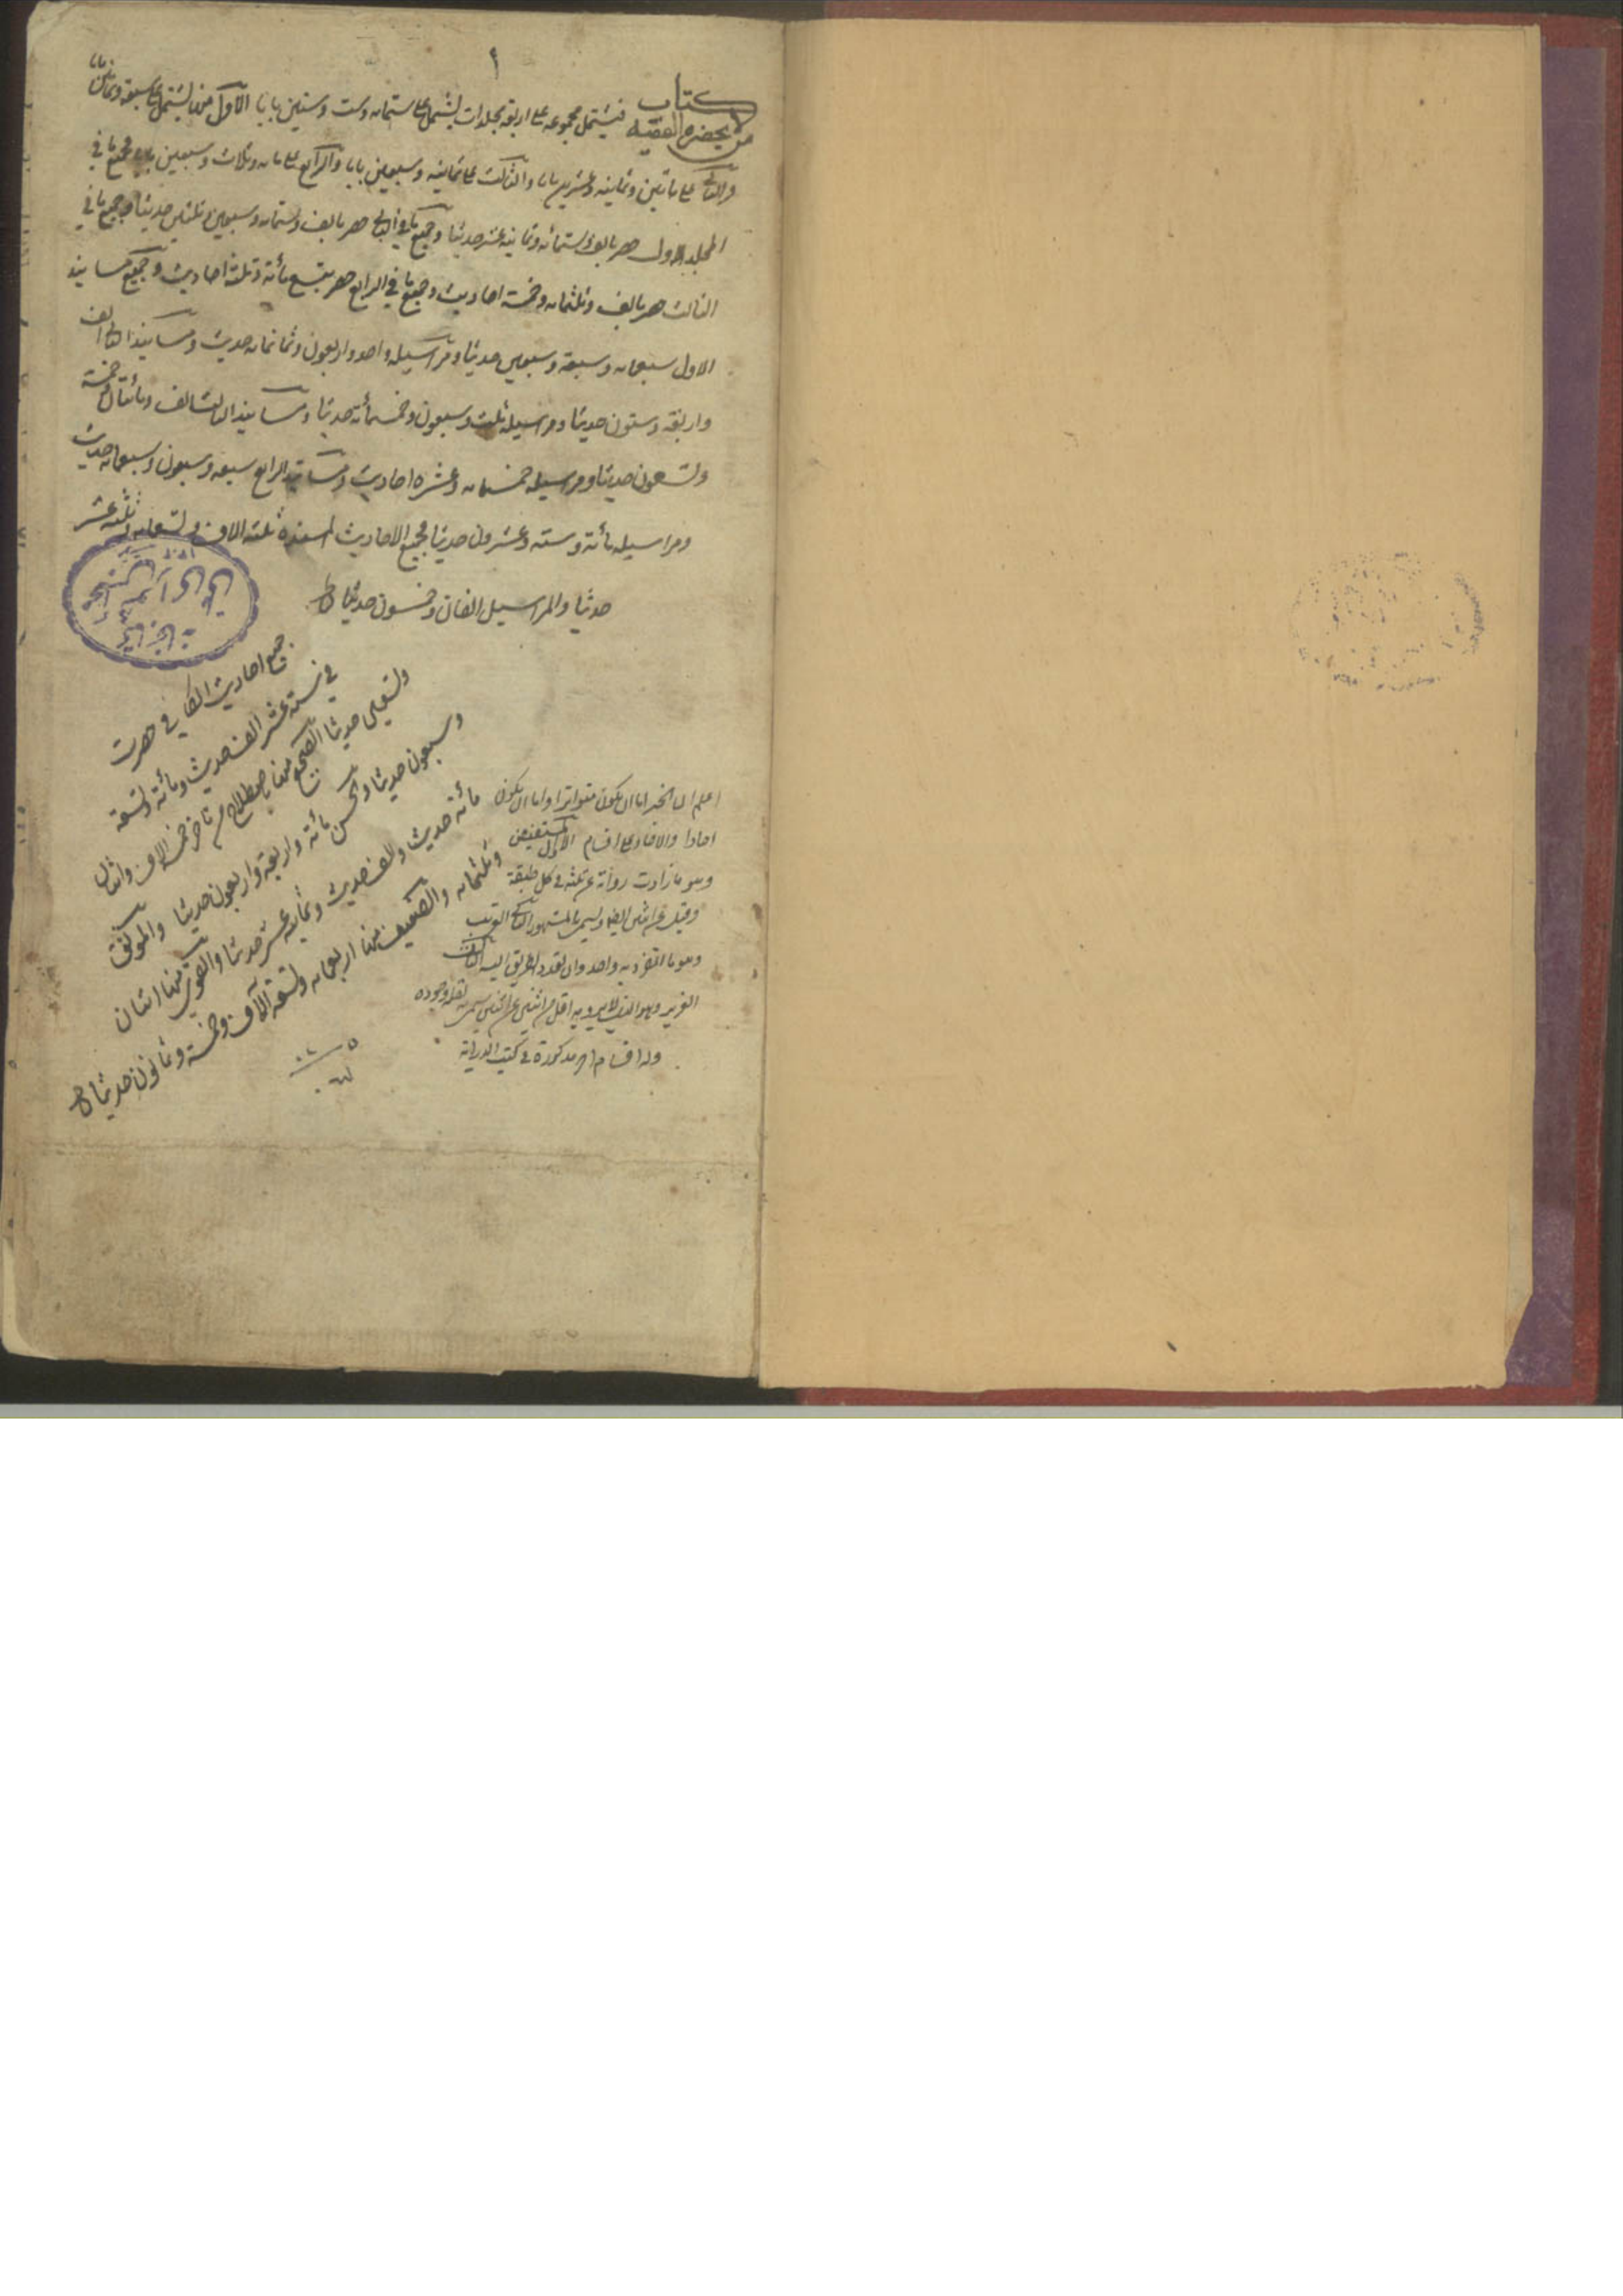 ١
كتاب من لا يحضره الفقيه فيشتمل مجموعه على اربعة مجلدات يشتمل على ستمائه وست وستين بابا الاول منها يشتمل على سبعة وثمانين بابا
والثاني على مائتين وثمانيه وعشرين بابا والثالث على ثمانيه وسبعين بابا والرابع على مائه وثلاث وسبعين بابا فجميع ما في
المجلد الاول حصر بالف وستمائه وثمانيه عشر حديثا وجميع ما في الثاني حصر بالف وستمائه وسبعين وثلثين حديثا وجميع ما في
الثالث حصر بالف وثلثمائه وخمسة احاديث وجميع ما في الرابع حصر بتسع مائة وثلثة احاديث وجميع مسانيد
الاول سبعمائه وسبعة وسبعين حديثا ومراسيله واحد واربعون وثمانمائه حديث ومسانيد الثاني الف
واربعة وستون حديثا ومراسيله ثلث وسبعون وخمسمائة حديثا ومسانيد الثالث الف ومائتان وخمسة
وتسعون حديثا ومراسيله خمسمائه وعشره احاديث ومسانيد الرابع سبعه وسبعون وسبعمائه حديث
ومراسيله مائة وسته وعشرون حديثا فجميع الاحاديث المسنده ثلثة الاف وتسعمائه وثلثه عشر
حديثا والمراسيل الفان وخمسون حديثا
جميع احاديث الكافي حصرت
في ستة عشر الف حديث ومائة وتسعة
وتسعين حديثا الصحيح منها باصطلاح من تاخر خمسة الاف واثنان
وسبعون حديثا والحسن مائة واربعة واربعون حديثا والموثق
مائة حديث والف حديث وثمانيه عشر حديثا والقوي منها اثنان
وثلثمائه والضعيف منها اربعمائه وتسعة الاف وخمسة وثمانون حديثا
اعلم ان الخبر اما ان يكون متواترا واما ان يكون
احادا والاحاد على اقسام الاول المستفيض
وهو ما زادت رواته عن ثلثه في كل طبقة
وقيل عن اثنين ايضا ويسمى بالمشهور الثاني الغريب
وهو ما انفرد به واحد وان تعدد الطريق اليه الثالث
العزيز وهو الذي لا يرويه اقل من اثنين عن اثنين سمي به لقلة وجوده
وله اقسام اخر مذكورة في كتب الدراية